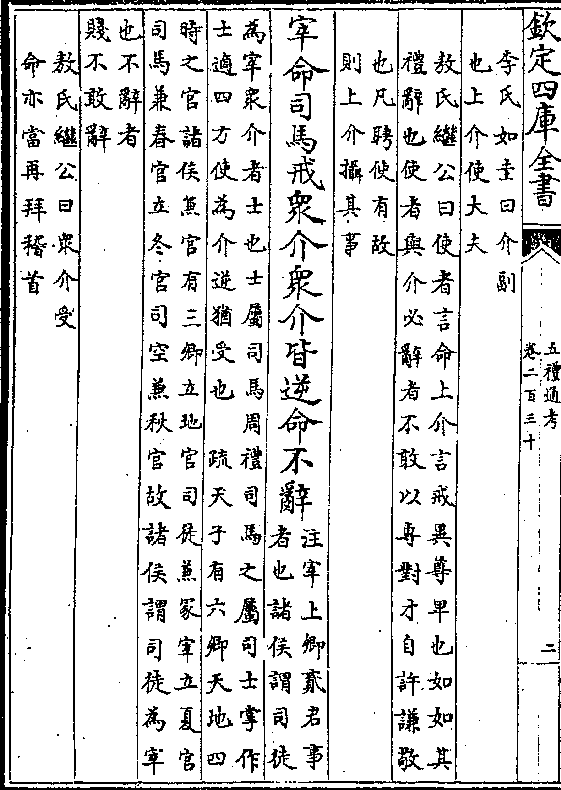 欽定四庫全書
五禮通考
卷二百三十
二
李氏如圭曰介副
也上介使大夫
敖氏繼公曰使者言命上介言戒異尊卑也如如其
禮辭也使者與介必辭者不敢以專對才自許謙敬
也凡聘使有故
則上介攝其事
宰命司馬戒衆介衆介皆逆命不辭
注宰上卿貳君事
者也諸侯謂司徒
為宰衆介者士也士屬司馬周禮司馬之屬司士掌作
士適四方使為介逆猶受也 疏天子有六卿天地四
時之官諸侯兼官有三卿立地官司徒兼冢宰立夏官
司馬兼春官立冬官司空兼秋官故諸侯謂司徒為宰
也不辭者
賤不敢辭
敖氏繼公曰衆介受
命亦當再拜稽首